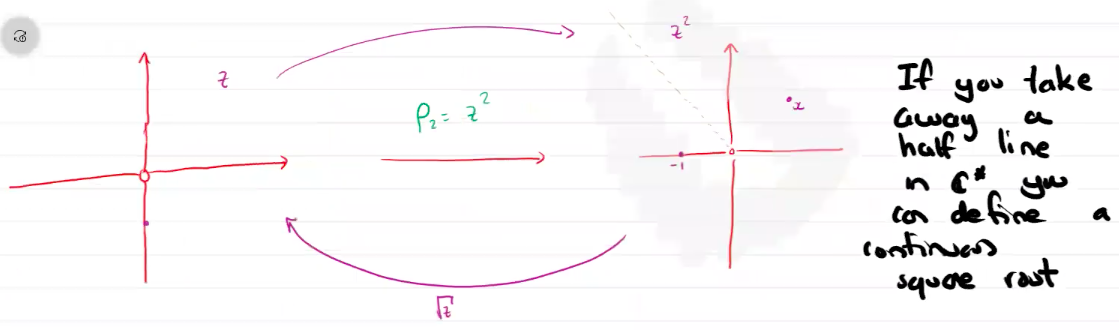 z
p₂ = z²
√z
z²
x
-1
If you take
away a
half line
in ℂ* you
can define a
continuous
square root